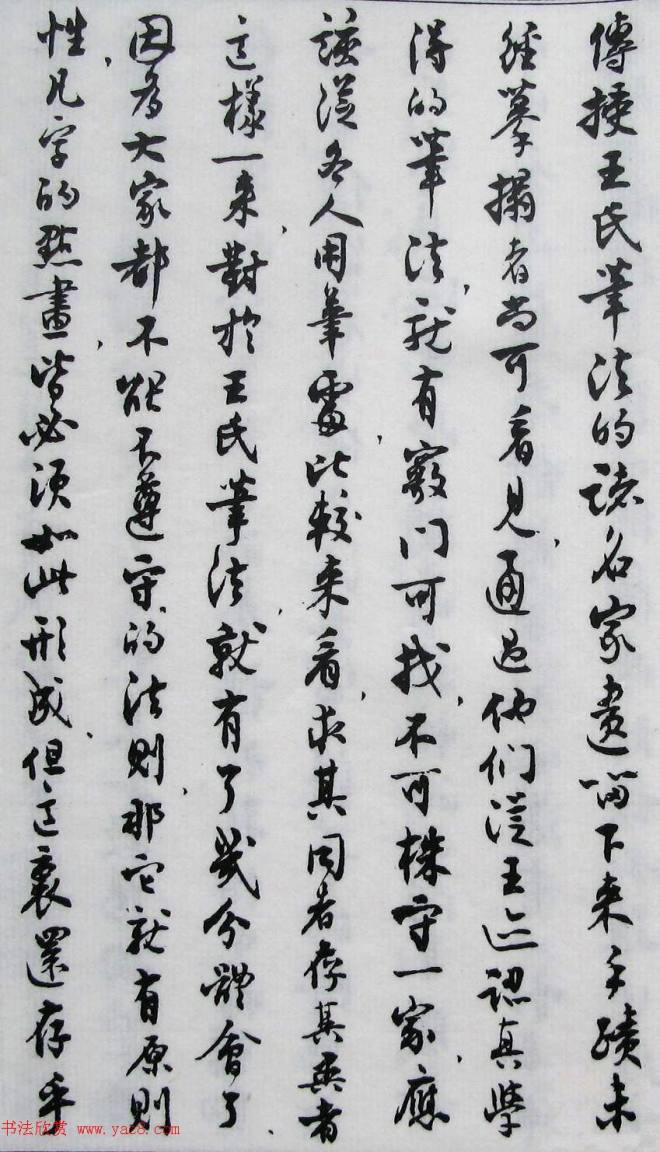 傳授王氏筆法的諸名家遺留下来手蹟未
經摹搨者尚可看見,通過他们從王迹認真學
得的筆法,就有竅门可找,不可株守一家,應
該從各人用筆處,比較来看,求其同者存其異者
這樣一来,對於王氏筆法,就有了幾分體會了,
因为大家都不能不遵守的法則,那它就有原則
性,凡字的點畫,皆必須如此形成,但這裏還存乎
书法欣赏 www.yac8.com